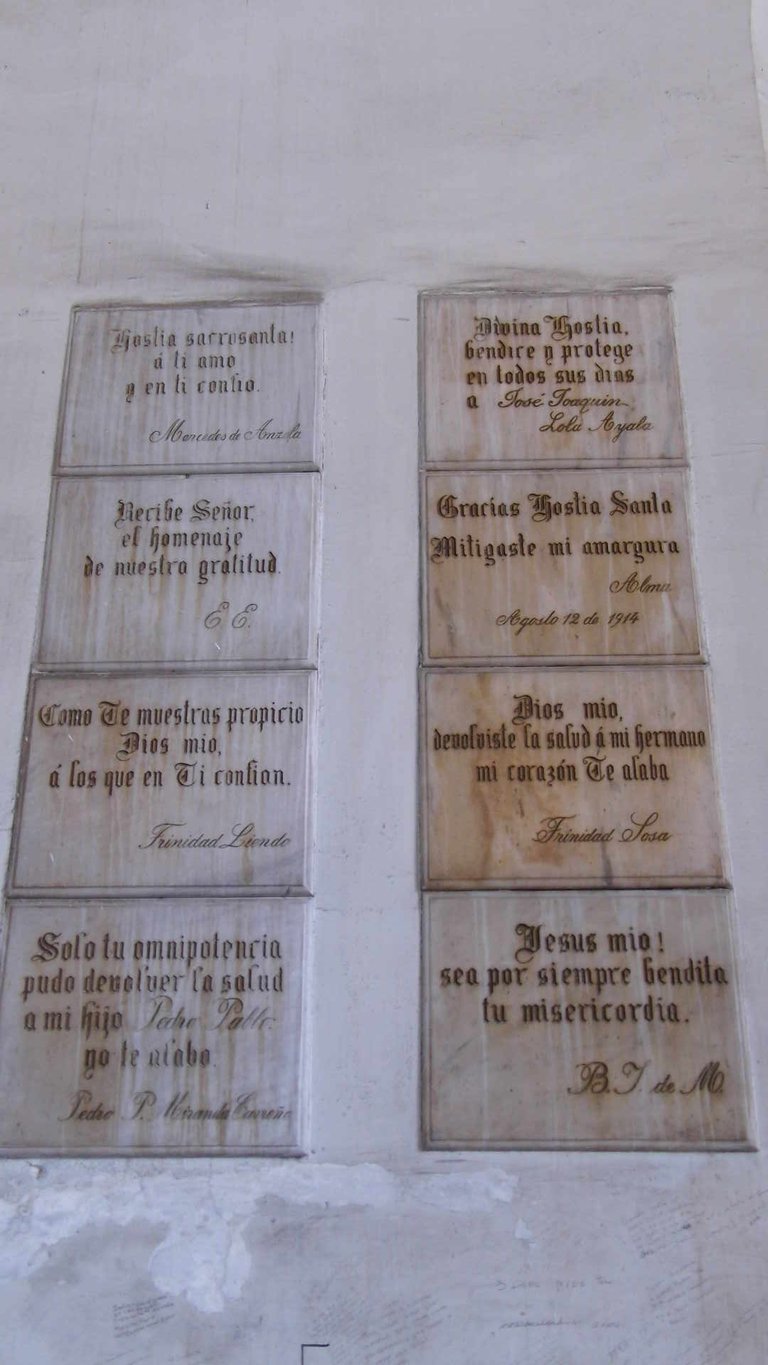 Hostia sacrosanta!
á ti amo
y en ti confio.
Mercedes de Anzola
Recibe Señor,
el homenaje
de nuestra gratitud.
E E.
Como Te muestras propicio
Dios mio,
á los que en Ti confian.
Trinidad Liendo
Solo tu omnipotencia
pudo devolver la salud
a mi hijo Pedro Pablo.
yo te alabo.
Pedro P. Miranda Carreño
Divina Hostia,
bendice y protege
en todos sus dias
a José Joaquin
Lola Ayala
Gracias Hostia Santa
Mitigaste mi amargura
Alma
Agosto 12 de 1914
Dios mio,
devolviste la salud á mi hermano
mi corazón Te alaba
Trinidad Sosa
Jesus mio!
sea por siempre bendita
tu misericordia.
B. T. de M.